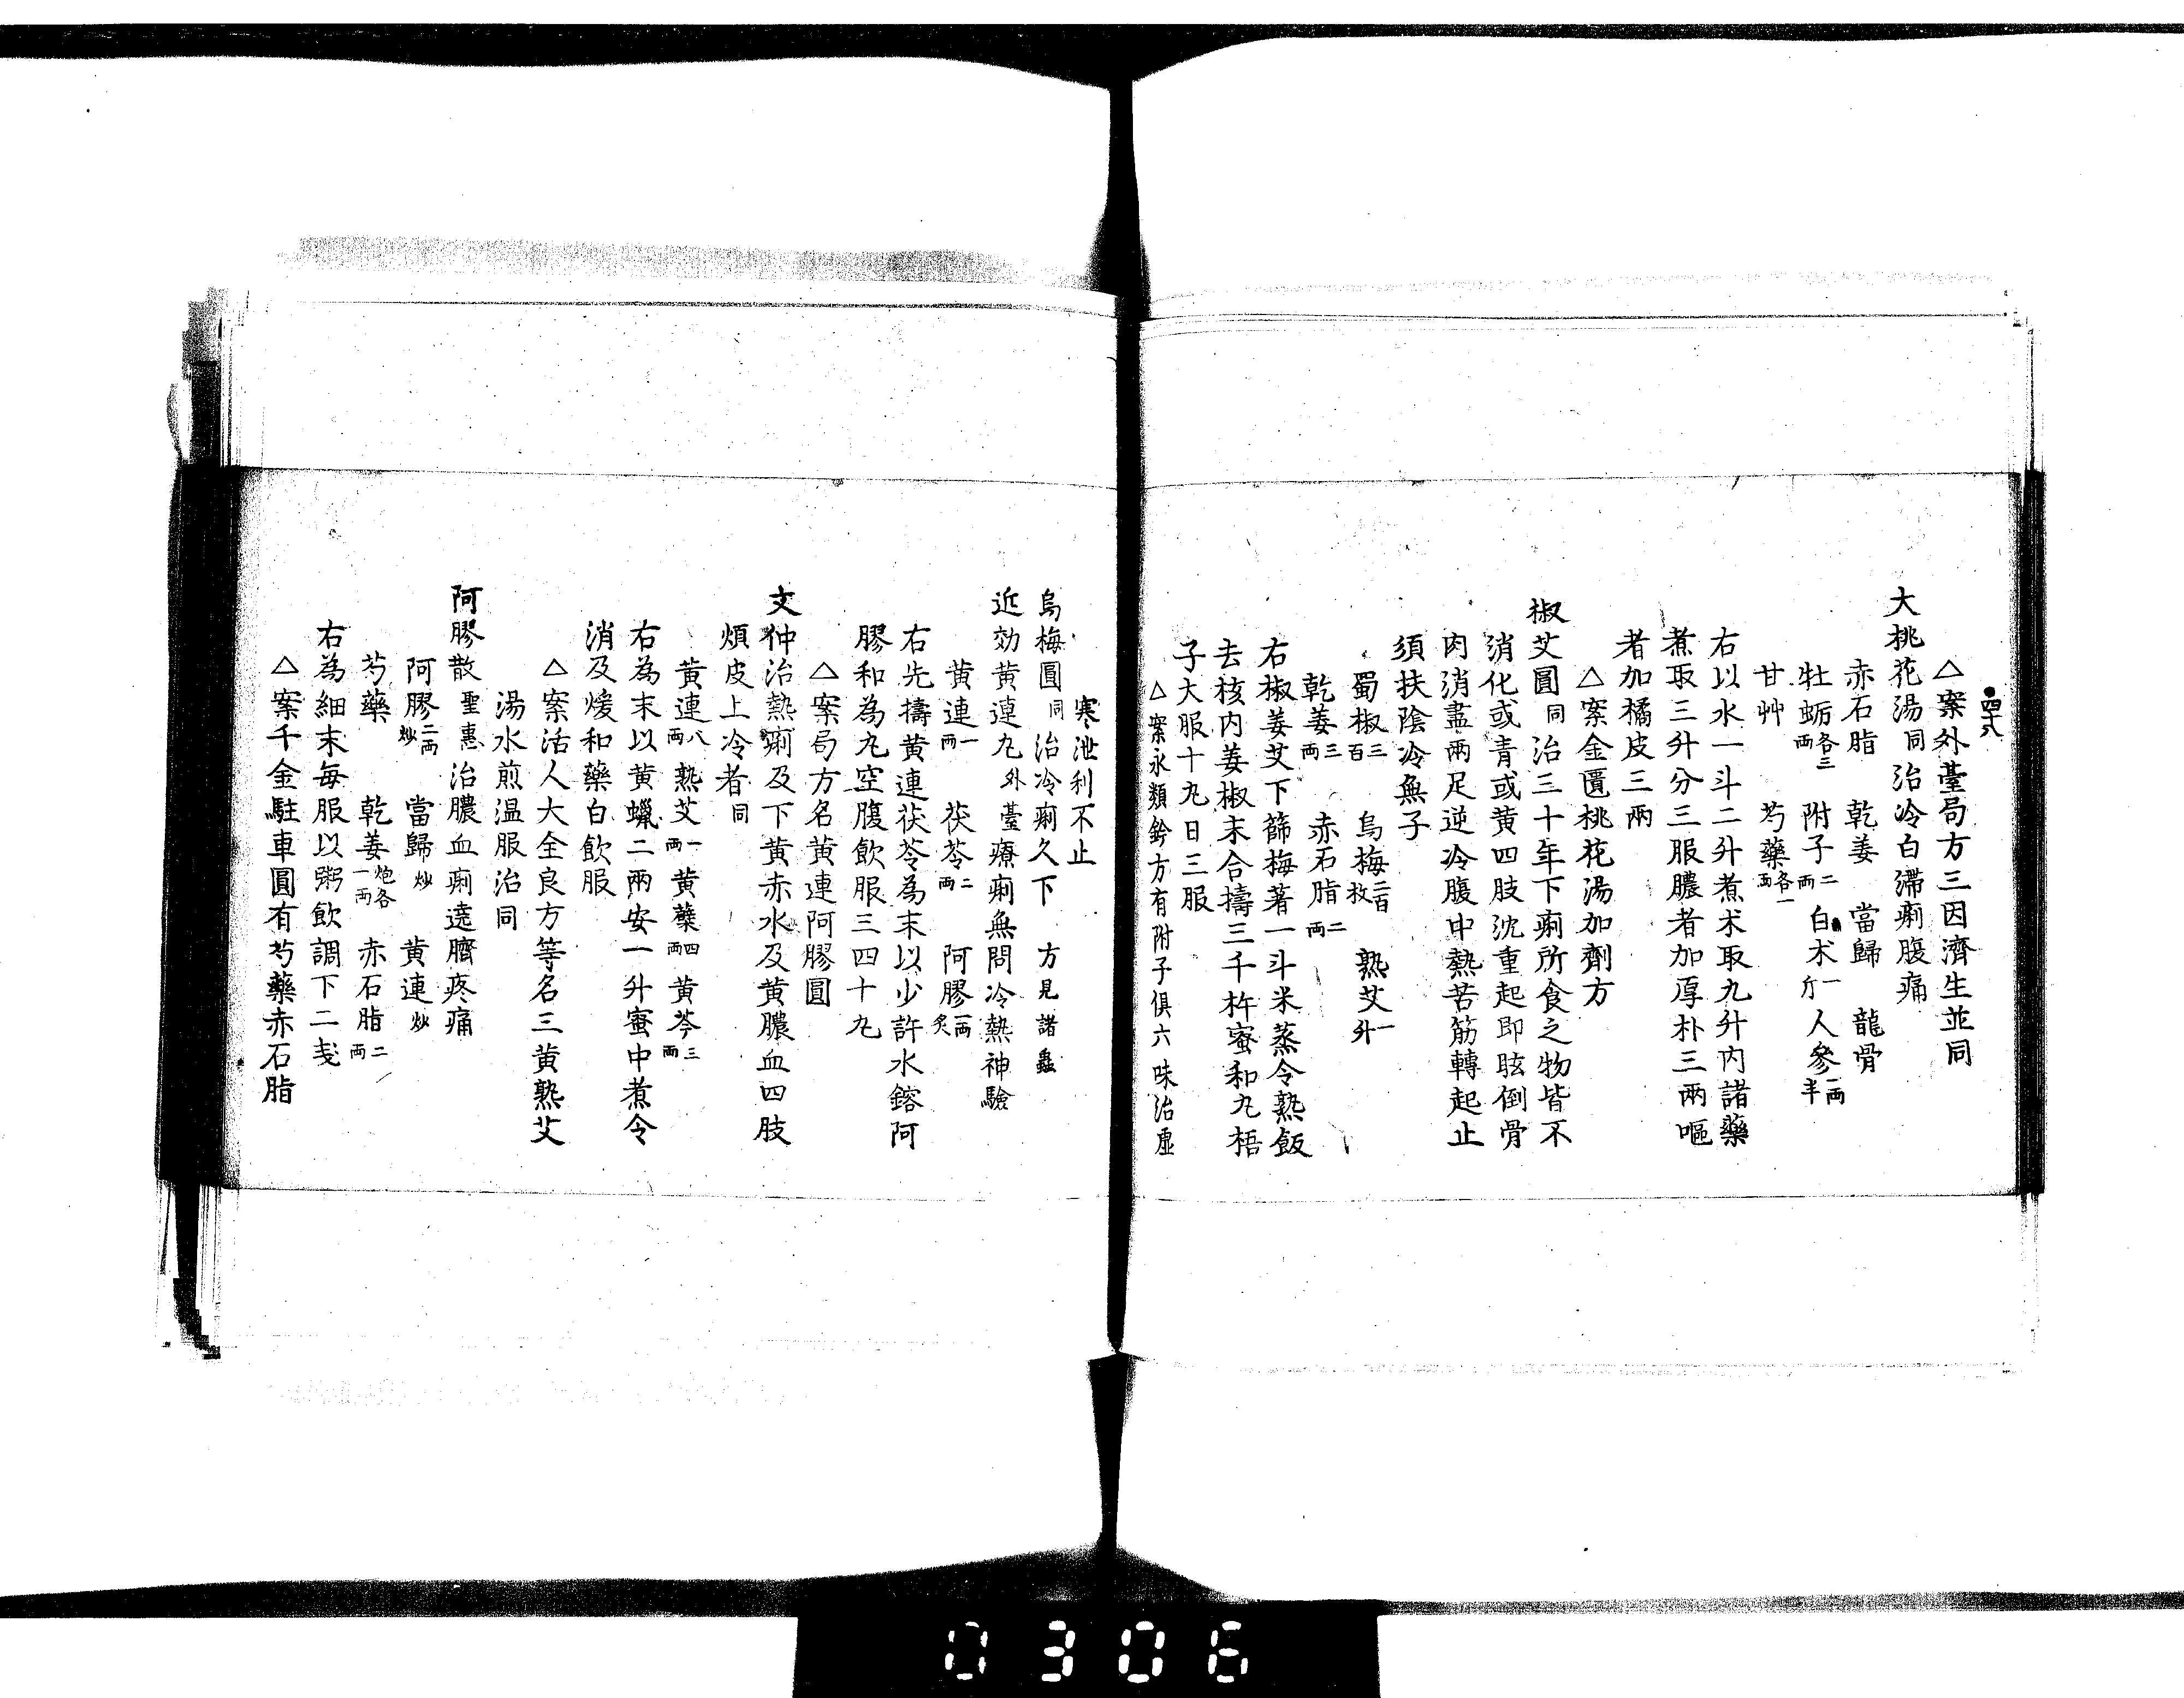 ●四十八
△案外臺局方三因濟生並同
大桃花湯同治冷白滯痢腹痛
赤石脂 乾姜 當歸 龍骨
牡蛎各三兩 附子二兩 白朮一斤 人參一兩半
甘艸 芍藥各一兩
右以水一斗二升煮朮取九升内諸藥
煮取三升分三服膿者加厚朴三兩嘔
者加橘皮三兩
△案金匱桃花湯加劑方
椒艾圓同治三十年下痢所食之物皆不
消化或青或黄四肢沈重起即眩倒骨
肉消盡兩足逆冷腹中熱苦筋轉起止
須扶陰冷無子
蜀椒三百 烏梅二百枚 熟艾一升
乾姜三兩 赤石脂二兩
右椒姜艾下篩梅著一斗米蒸令熟飯
去核内姜椒末合擣三千杵蜜和丸梧
子大服十丸日三服
△案永類鈐方有附子俱六味治虚
寒泄利不止
烏梅圓同治冷痢久下 方見諸蟲
近効黄連丸外臺療痢無問冷熱神驗
黄連一兩 茯苓二兩 阿膠一兩炙
右先擣黄連茯苓為末以少許水鎔阿
膠和為丸空腹飲服三四十丸
△案局方名黄連阿膠圓
文仲治熱痢及下黄赤水及黄膿血四肢
煩皮上冷者同
黄連八兩 熟艾一兩 黄蘗四兩 黄芩三兩
右為末以黄蠟二兩安一升蜜中煮令
消及煖和藥白飲服
△案活人大全良方等名三黄熟艾
湯水煎温服治同
阿膠散聖惠治膿血痢遶臍疼痛
阿膠二兩炒 當歸炒 黄連炒
芍藥 乾姜炮各一兩 赤石脂二兩
右為細末毎服以粥飲調下二戔
△案千金駐車圓有芍藥赤石脂
0306